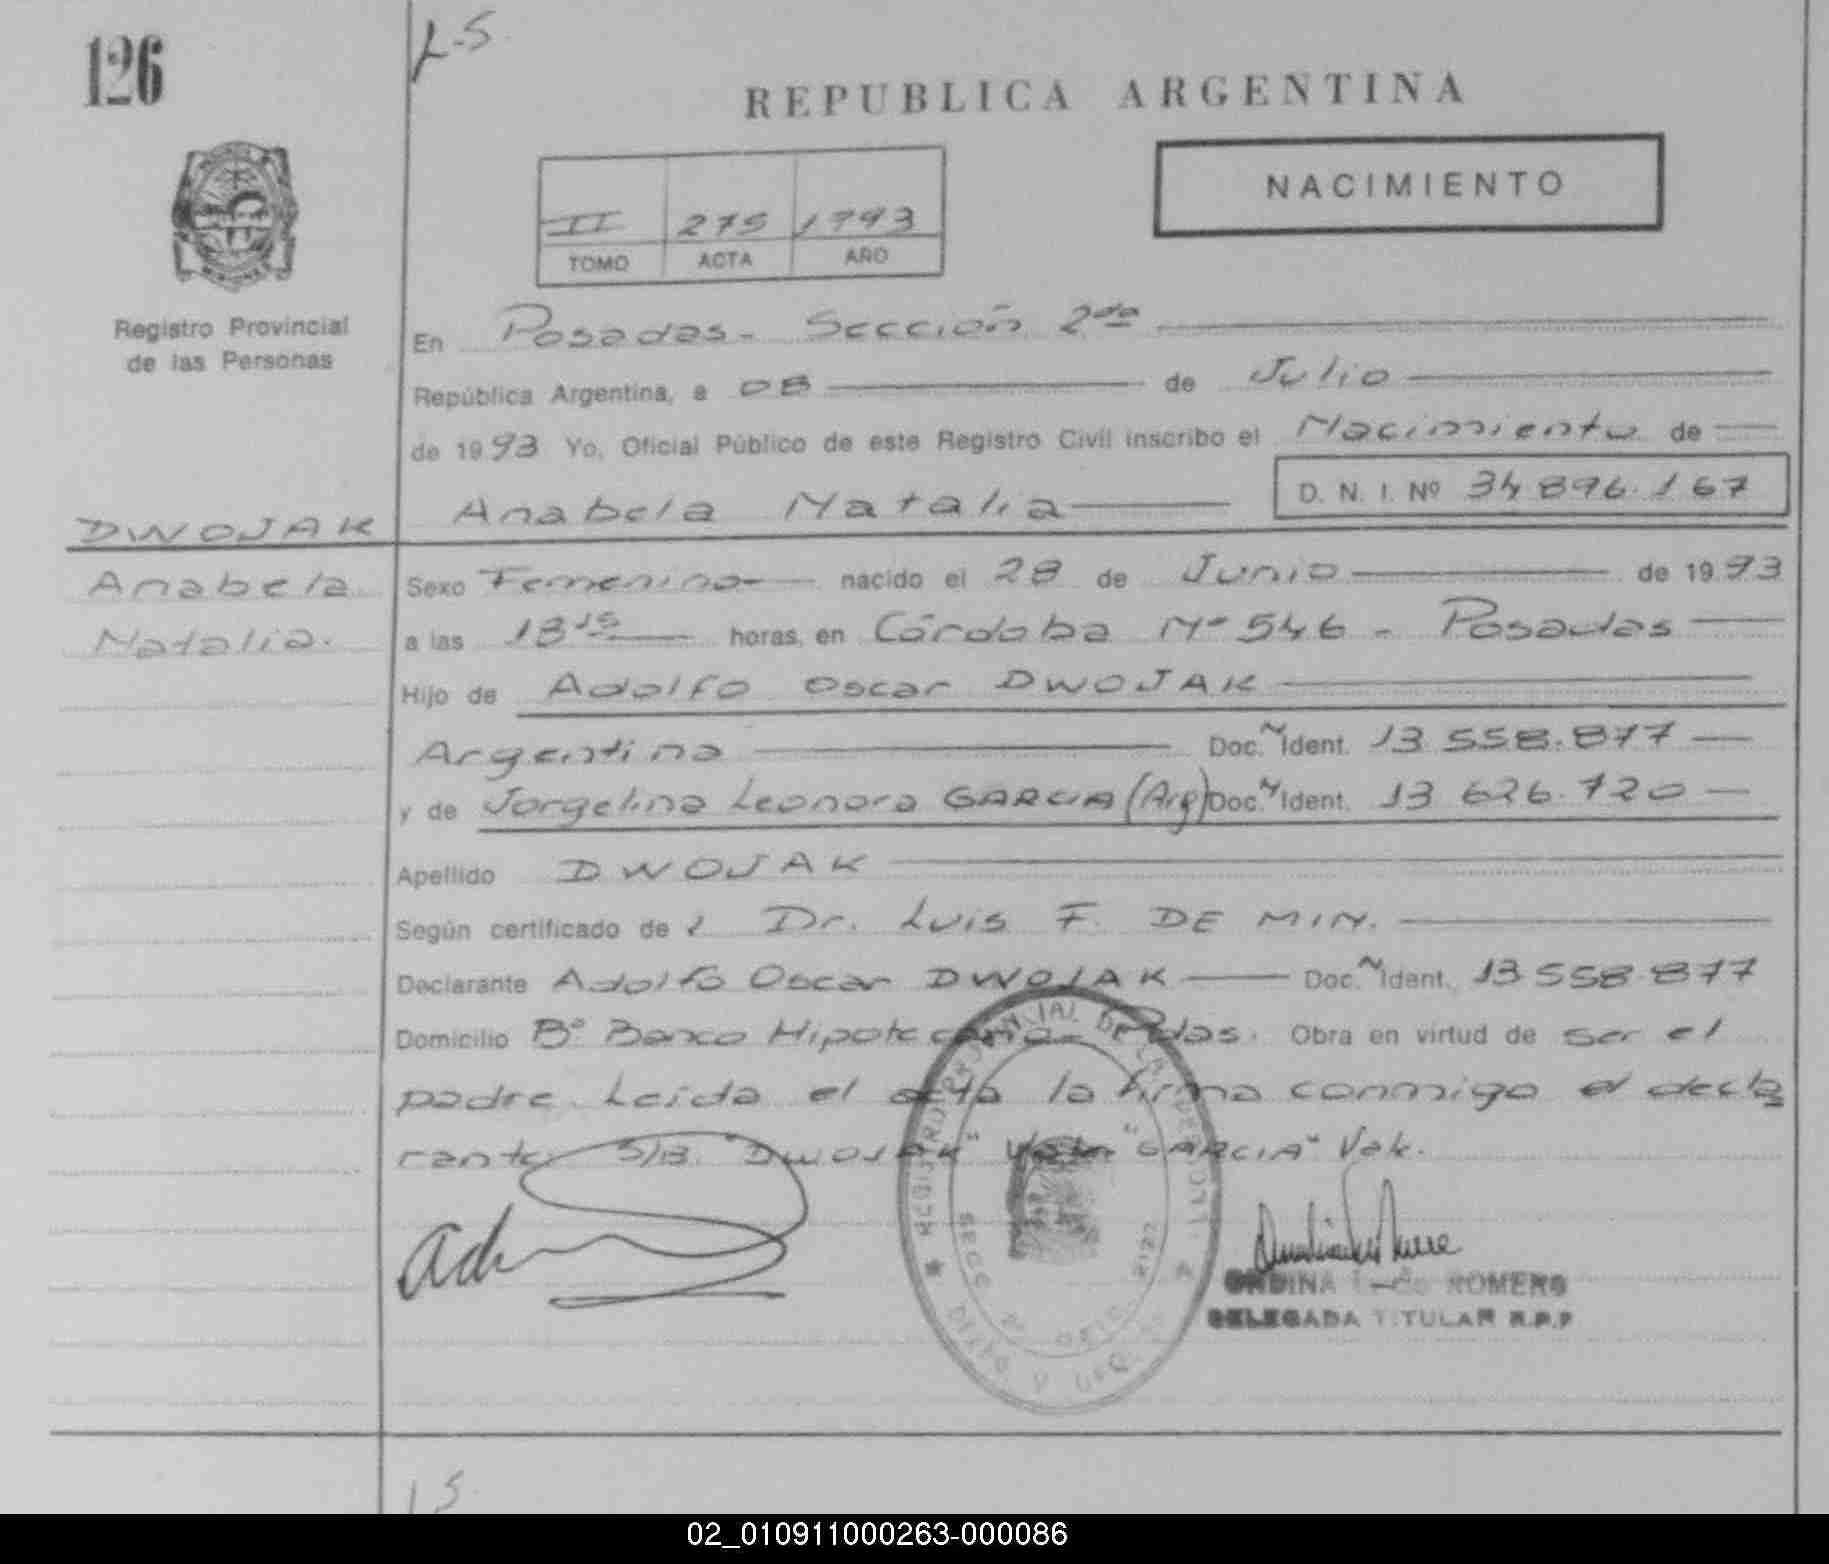 126
L-S.
REPUBLICA ARGENTINA
NACIMIENTO
II 275 1993
TOMO ACTA AÑO
Registro Provincial
de las Personas
En Posadas - Sección 2da
República Argentina, a 08 de Julio
de 1993 Yo, Oficial Público de este Registro Civil inscribo el Nacimiento de
Anabela Natalia D. N. I. Nº 34.896.167
DWOJAK
Anabela
Natalia.
Sexo Femenino nacido el 28 de Junio de 1993
a las 18 15 horas, en Córdoba Nº 546 - Posadas
Hijo de Adolfo Oscar DWOJAK
Argentino Doc. N Ident. 13.558.877
y de Jorgelina Leonora GARCIA (Arg) Doc. N Ident. 13.626.720
Apellido DWOJAK
Según certificado de l Dr. Luis F. DE MIN.
Declarante Adolfo Oscar DWOJAK Doc. N Ident. 13.558.877
Domicilio Bº Banco Hipotecario - Pdas. Obra en virtud de ser el
padre. Leída el acta la firma conmigo el decla
rante. S/B. "DWOJAK" Vale "GARCIA" Vale.
REGISTRO PROVINCIAL DE LAS PERSONAS
SECC. 2
ORDINA de ROMERO
DELEGADA TITULAR R.P.P
02_010911000263-000086